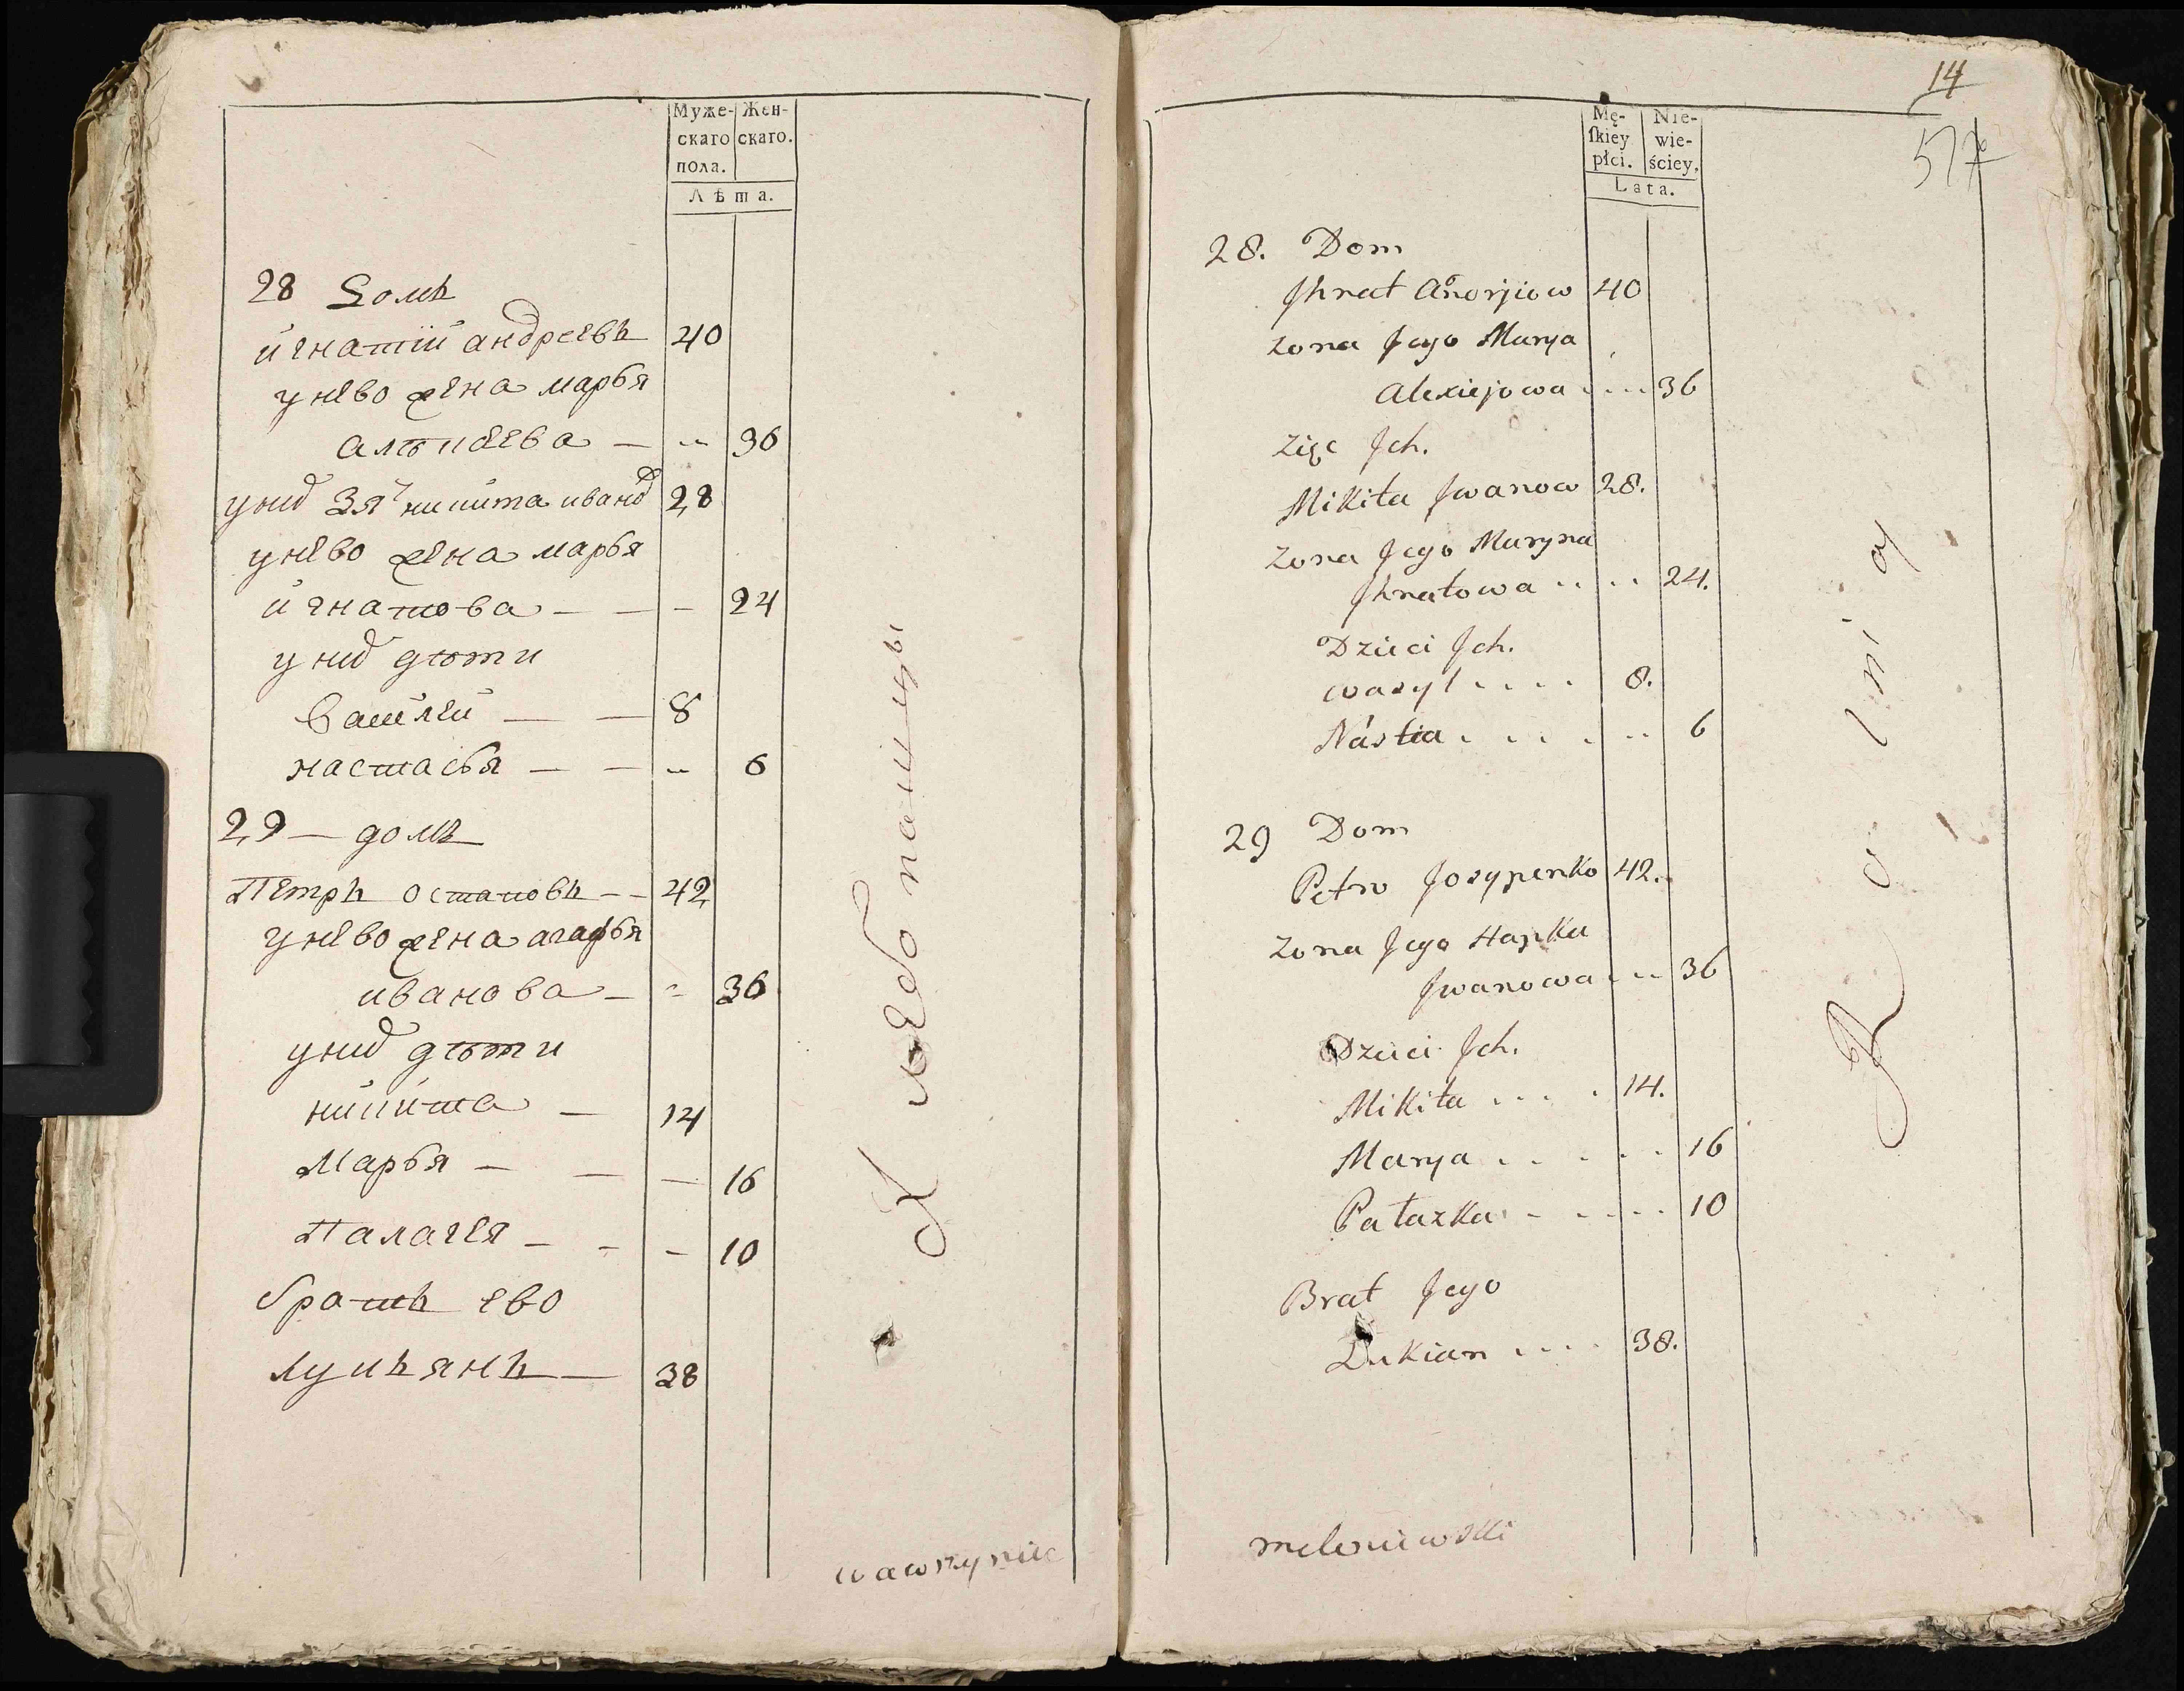 Муже-
скаго
пола.
Жен-
скаго.
Лѣта.
28 Домъ
игнатïй андреевъ 40
унево жена марья
алѣксѣева — „ 36
унид зят никита иванд 28
унево жена марья
игнатова — — — 24
унид дѣти
василей — — 8
настасья — — „ 6
29 — домъ
Петръ остаповъ — — 42
унево жена агафья
иванова — „ 36
унид дѣти
никита — 14
Марья — — — 16
Палагея — - - 10
братъ ево
лукъянъ — 38
Хлебопашцы
wawrzyniec
14
577
Mę-
ſkiey
płci.
Nie-
wie-
ściey,
Lata.
28. Dom
Jhnat Andrjiow 40
Zona Jego Marya
Alexiejowa .... 36
Zięc Jch.
Mikita Jwanow 28.
Zona Jego Maryna
Jhnatowa .. .. 24.
Dzieci Jch.
wasyl .... 8.
Nástia .... .. 6
29 Dom
Petro Josypenko 42.
Zona Jego Hapka
Jwanowa ... 36
Dzieci Jch.
Mikita .... 14.
Marya ..... 16
Pałazka ..... 10
Brat Jego
Łukian .... 38.
Rolnicy
meleniewski